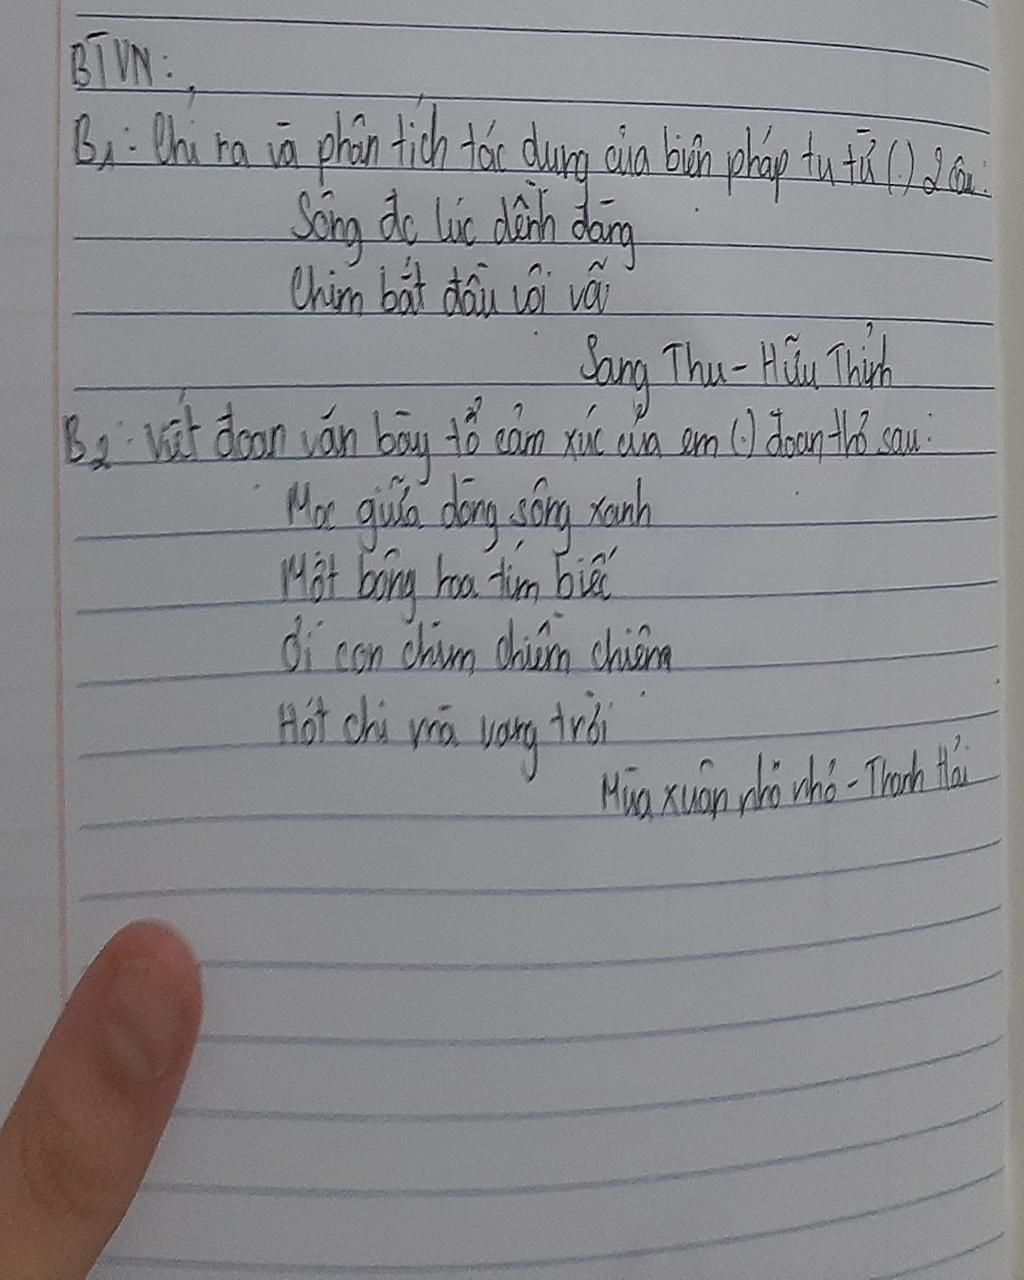 BTVN:
B1: Chỉ ra và phân tích tác dụng của biện pháp tu từ (.) 2 câu:
Sông đc lúc dềnh dàng
Chim bắt đầu vội vã
Sang Thu - Hữu Thỉnh
B2: Viết đoạn văn bày tỏ cảm xúc của em (.) đoạn thơ sau:
Mọc giữa dòng sông xanh
Một bông hoa tím biếc
Ơi con chim chiền chiện
Hót chi mà vang trời
Mùa xuân nho nhỏ - Thanh Hải